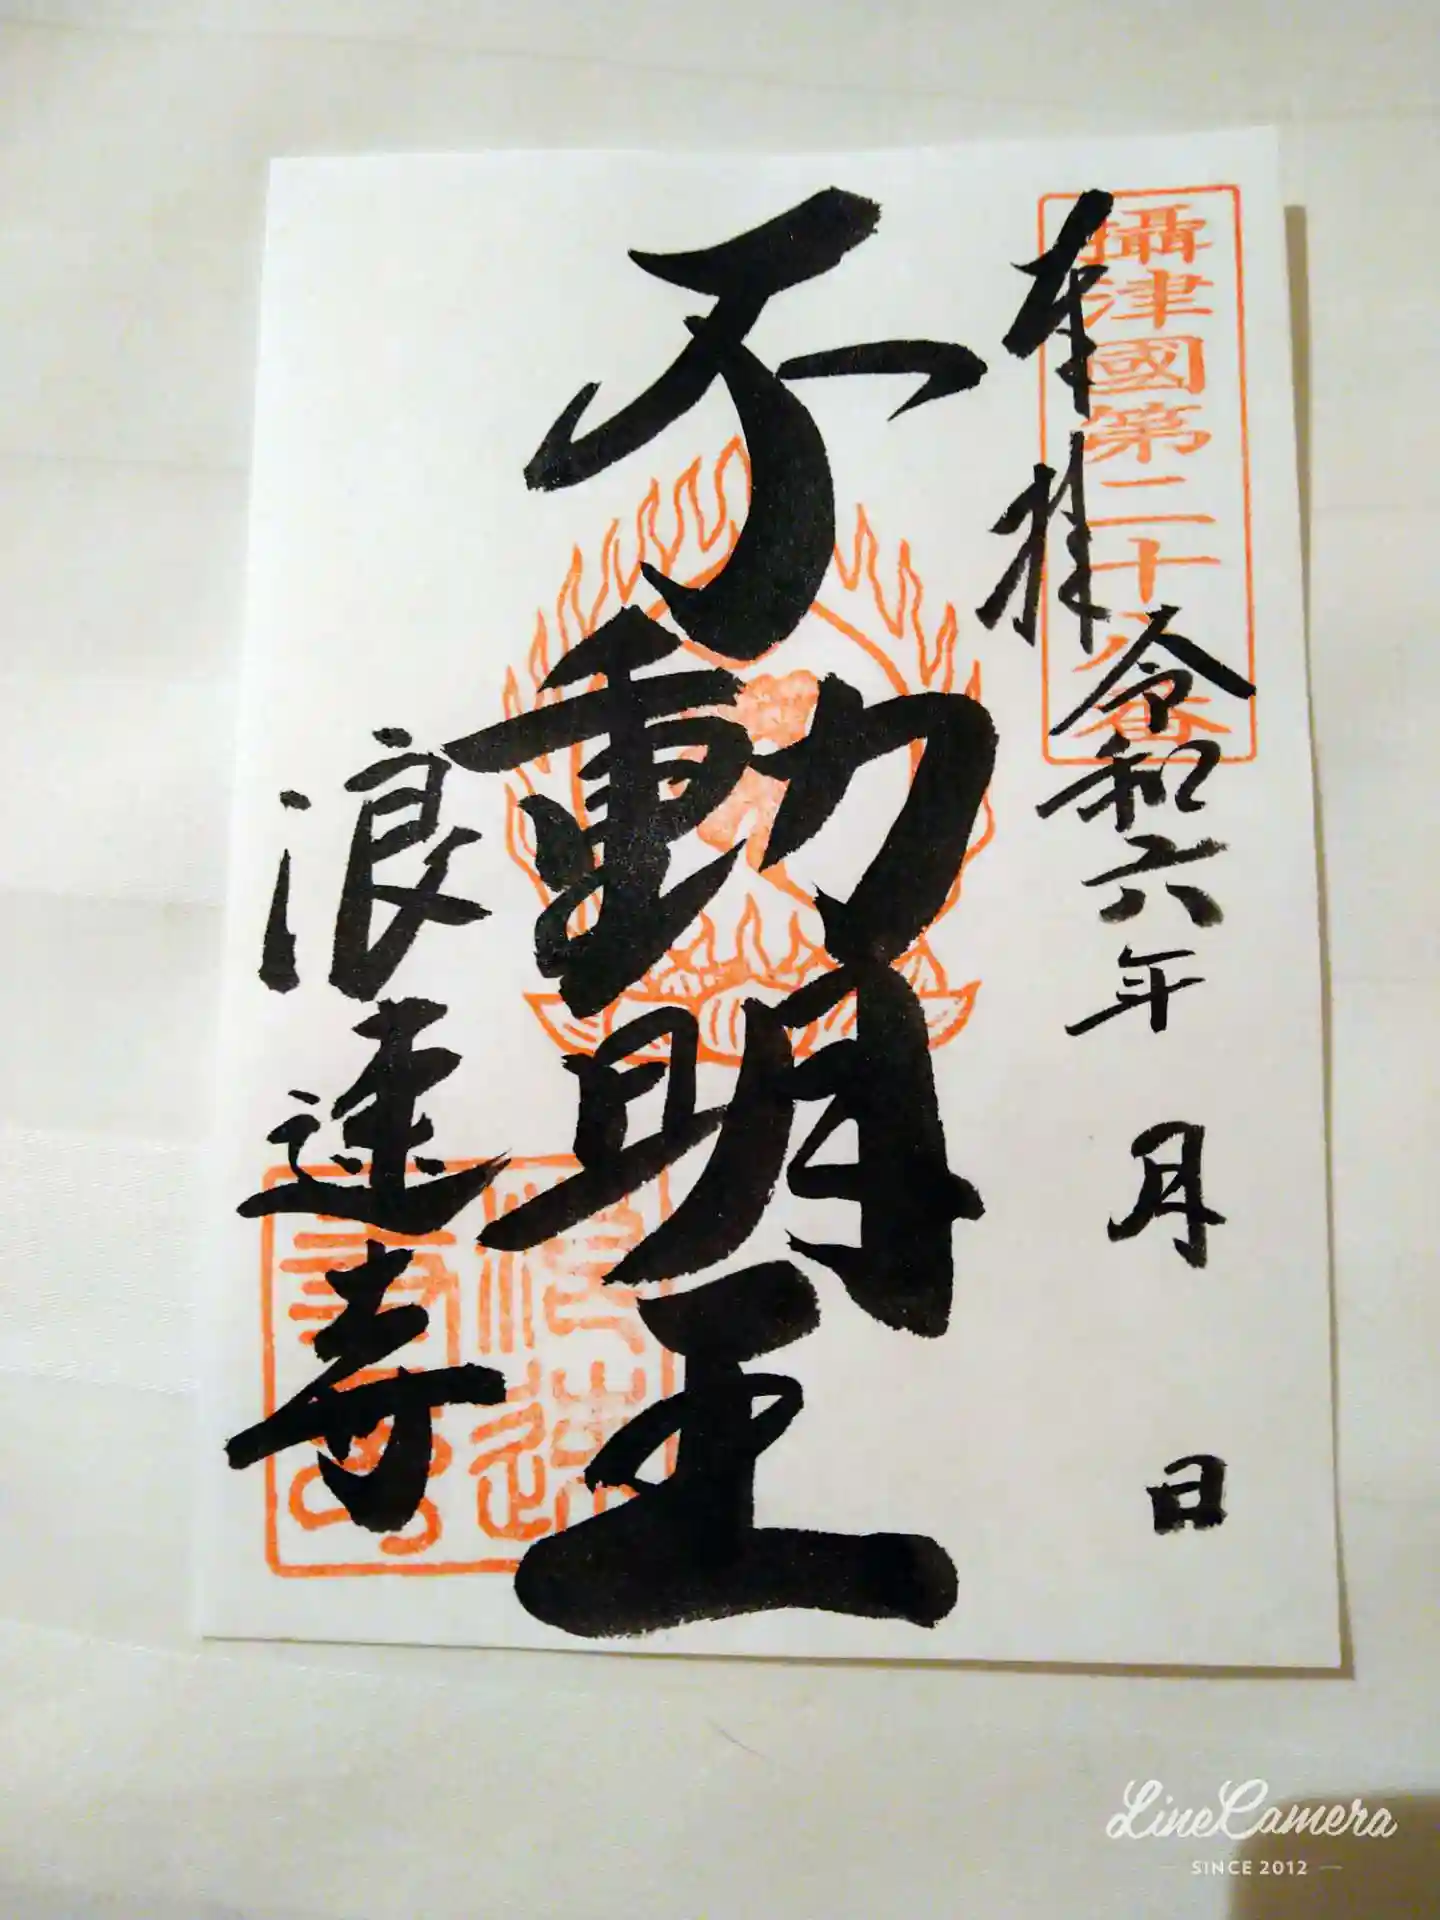 奉拝
攝津國第二十八番
令和六年 月 日
不動明王
浪速寺
LineCamera
SINCE 2012